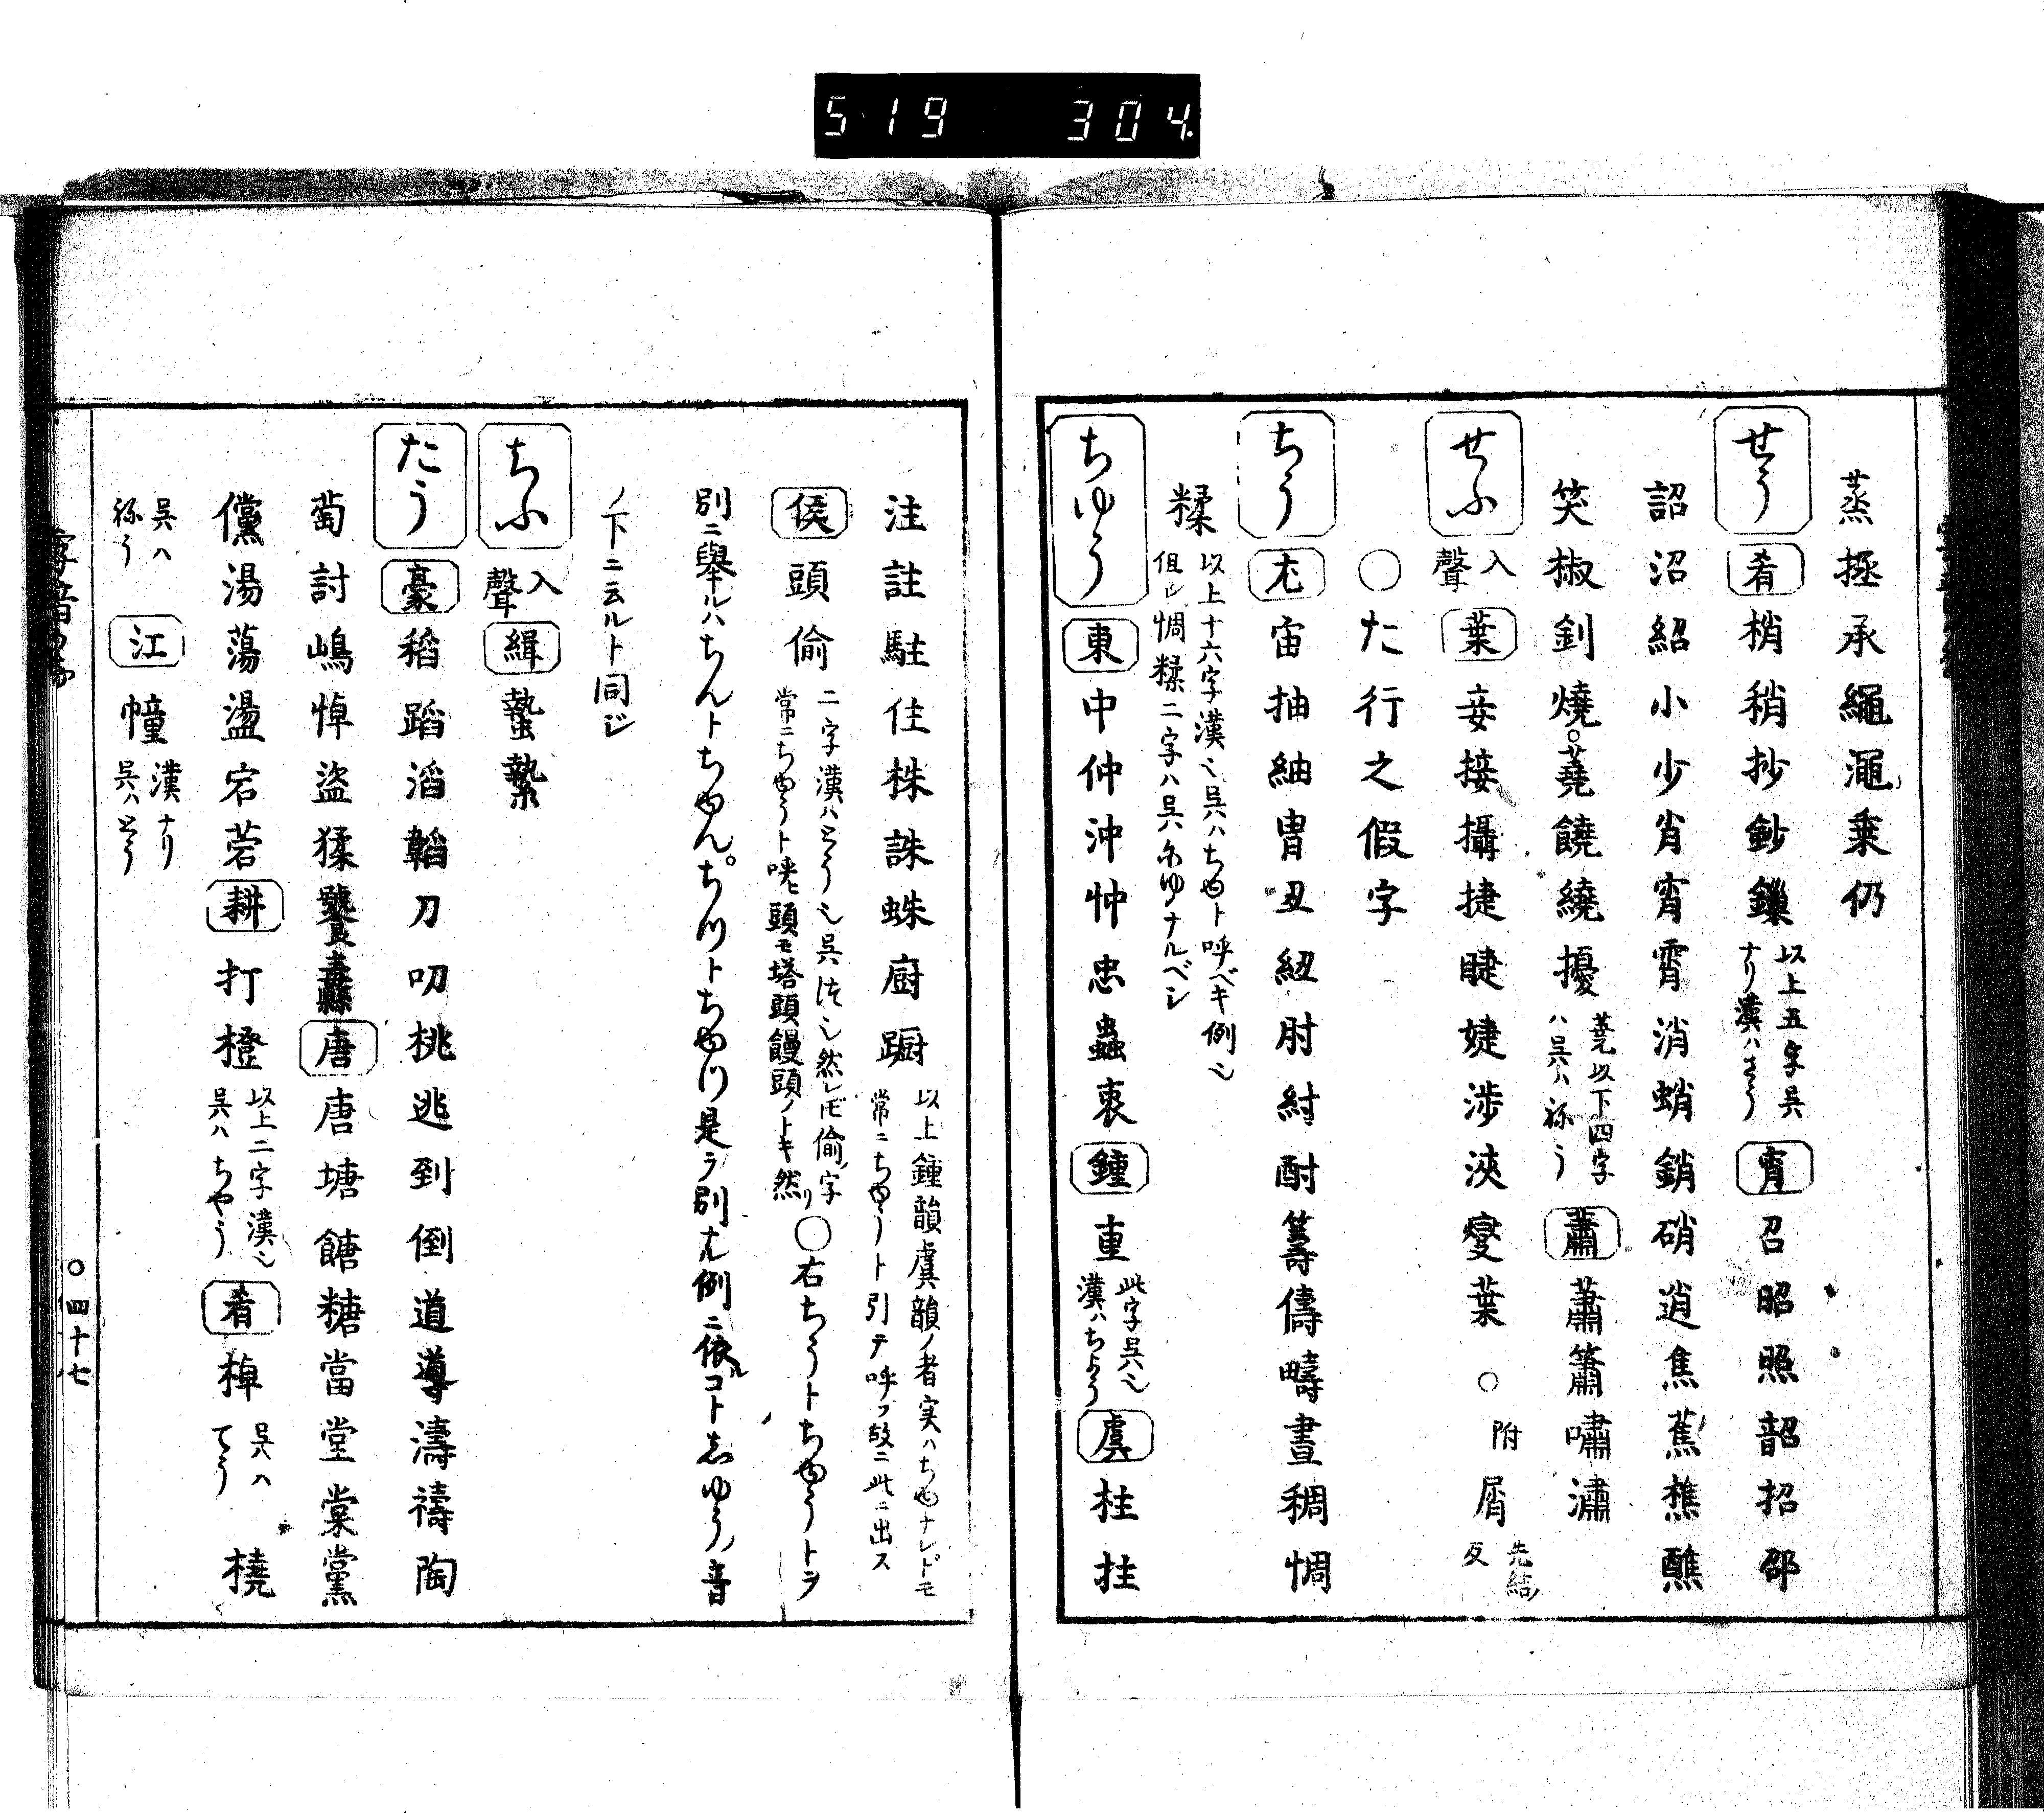 519 304
蒸拯承繩澠乗仍
せう 肴 梢稍抄鈔鏁 以上五字呉ナリ漢ハさう 宵 召昭照韶招邵
詔沼紹小少肖宵霄消蛸銷硝逍焦蕉樵醮
笑椒釗燒。蕘饒繞擾 蕘以下四字ハ呉ハ祢う 蕭 蕭簫嘯潚
せふ 入聲 葉 妾接攝捷睫婕渉浹燮葉 ○ 附 屑 先結ノ反
○た行之假字
ちう 尤 宙抽紬冑丑紐肘紂酎籌儔疇晝稠惆
糅 以上十六字漢也呉ハちゆト呼ベキ例也但シ惆糅二字ハ呉ハにゆナルベシ
ちゆう 東 中仲沖忡忠蟲衷 鍾 重 此字呉也漢ハちよう 虞 柱拄
注註駐住株誅蛛廚蹰 以上鍾韻虞韻ノ者実ハちゆナレドモ常ニちゆうト引テ呼フ故ニ此ニ出ス
侯 頭偷 二字漢ハとう也呉ハ也然レドモ偷ノ字常ニちゆうト呼ヒ頭モ塔頭饅頭ノトキ然リ ○右ちうトちゆうトヲ
別ニ舉ルハちんトちゆん。ちツトちゆツ是ヲ別ル例ニ依ルコト志ゆうノ音
ノ下ニ云ルト同ジ
ちふ 入聲 緝 蟄縶
たう 豪 稻蹈滔韜刀叨桃逃到倒道導濤禱陶
萄討嶋悼盗猱饕纛 唐 唐塘餹糖當堂棠黨
儻湯蕩盪宕菪 耕 打橙 以上二字漢也呉ハちやう 肴 棹 呉ハてう 橈
呉ハ祢う 江 幢 漢ナリ呉ハとう
○四十七